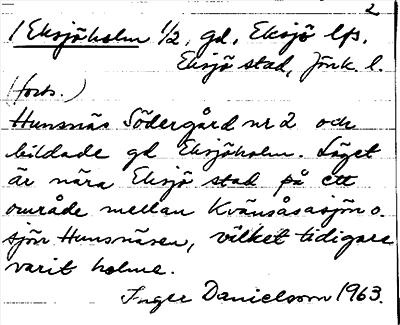 2
/ Eksjöholm 1/2, gd, Eksjö lfs.
Eksjö stad, Jönk. l.
(forts.)
Hunsnäs Södergård nr 2 och
bildade gd Eksjöholm. Läget
är nära Eksjö stad på ett
område mellan Kvänsåsasjön o.
sjön Hunsnäsen, vilket tidigare
varit holme.
Inger Danielsson 1963.